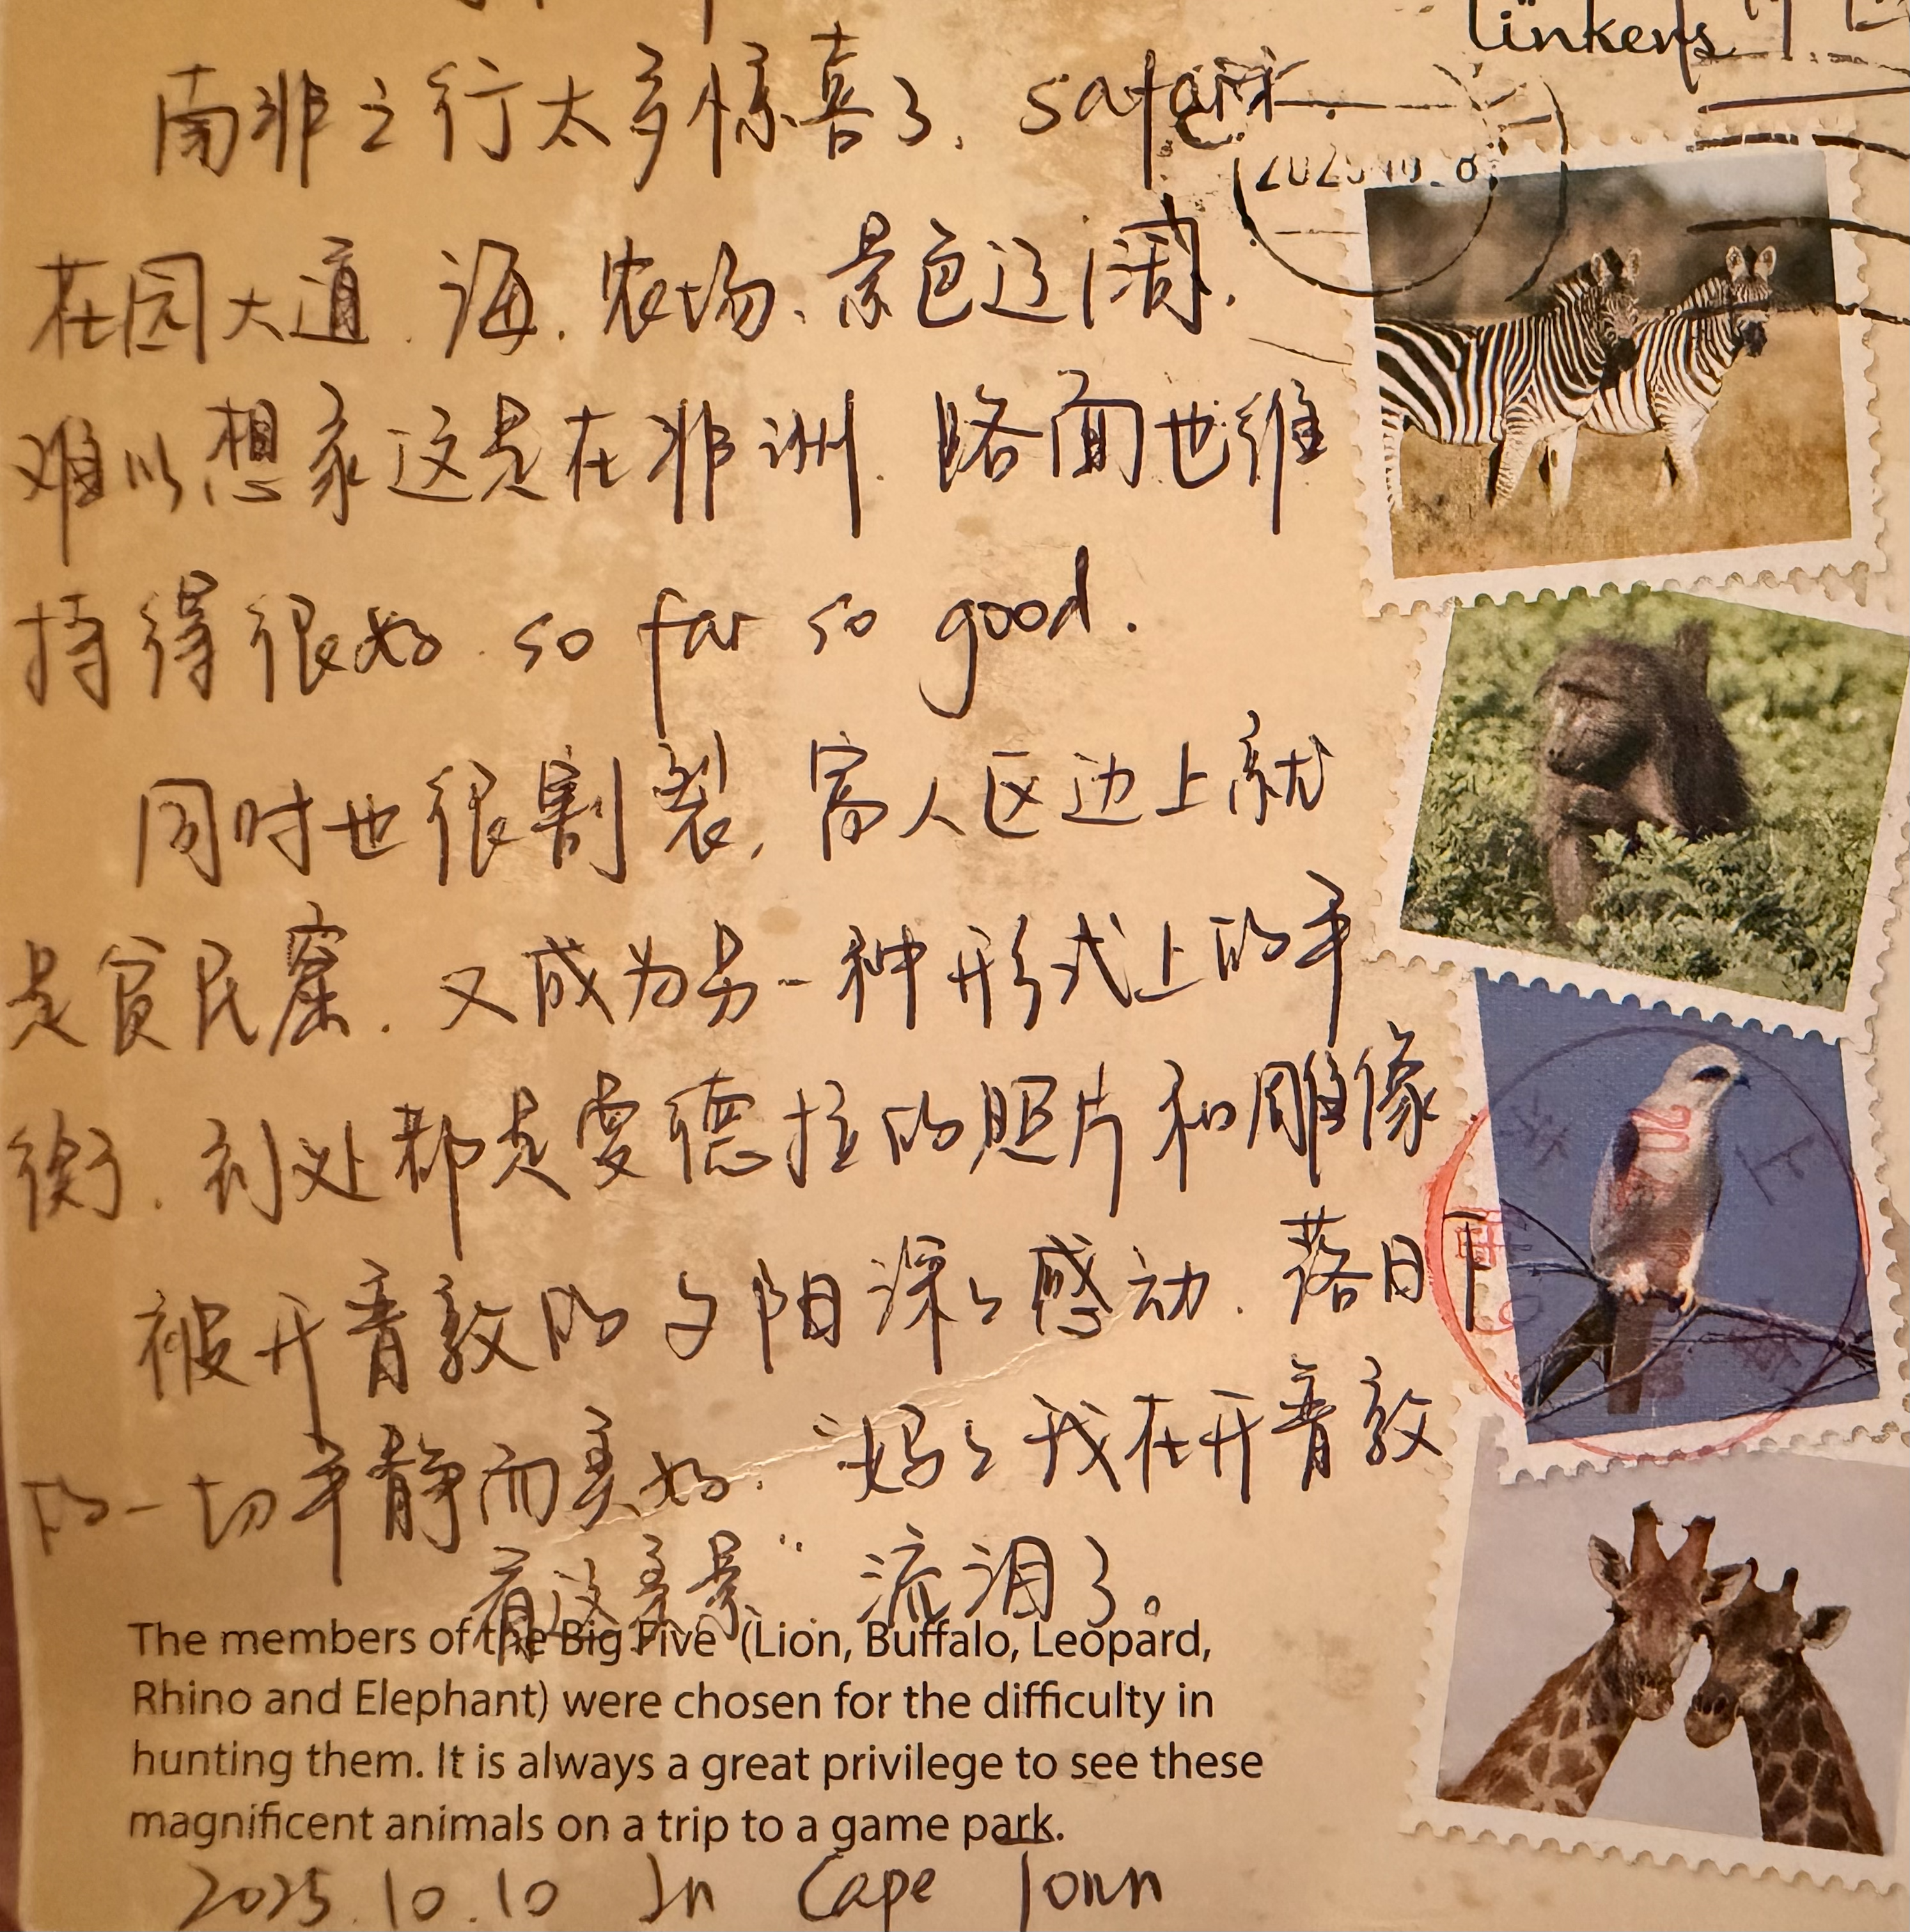 linkens
南非之行太多惊喜了, safari.
2025 10. 8
花园大道. 海. 农场. 景色辽阔.
难以想象这是在非洲. 路面也维
持得很好. so far so good.
同时也很割裂, 富人区边上就
是贫民窟. 又成为另一种形式上的平
衡. 到处都是曼德拉的照片和雕像
被开普敦的夕阳深深感动. 落日下
的一切平静而美好. “妈妈我在开普敦
看这美景” 流泪了。
The members of the Big Five (Lion, Buffalo, Leopard,
Rhino and Elephant) were chosen for the difficulty in
hunting them. It is always a great privilege to see these
magnificent animals on a trip to a game park.
2025.10.10 In Cape Town